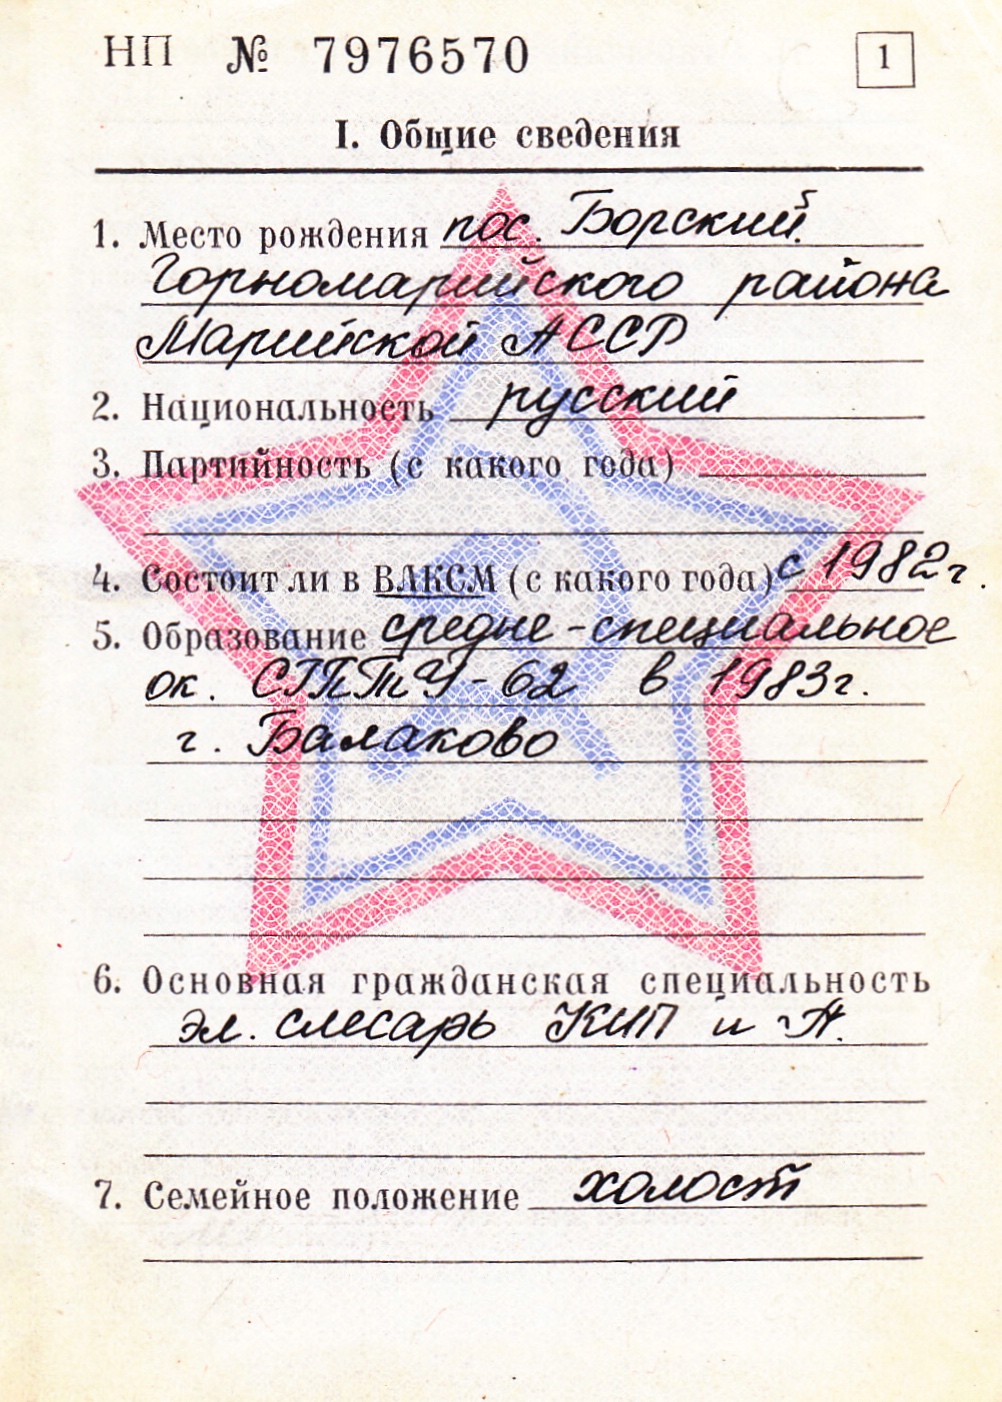 НП № 7976570 1
I. Общие сведения
1. Место рождения пос. Борский
Горномарийского района
Марийской АССР
2. Национальность русский
3. Партийность (с какого года)
4. Состоит ли в ВЛКСМ (с какого года) с 1982г.
5. Образование средне-специальное
ок. СГПТУ-62 в 1983г.
г. Балаково
6. Основная гражданская специальность
эл. слесарь КИП и А.
7. Семейное положение холост